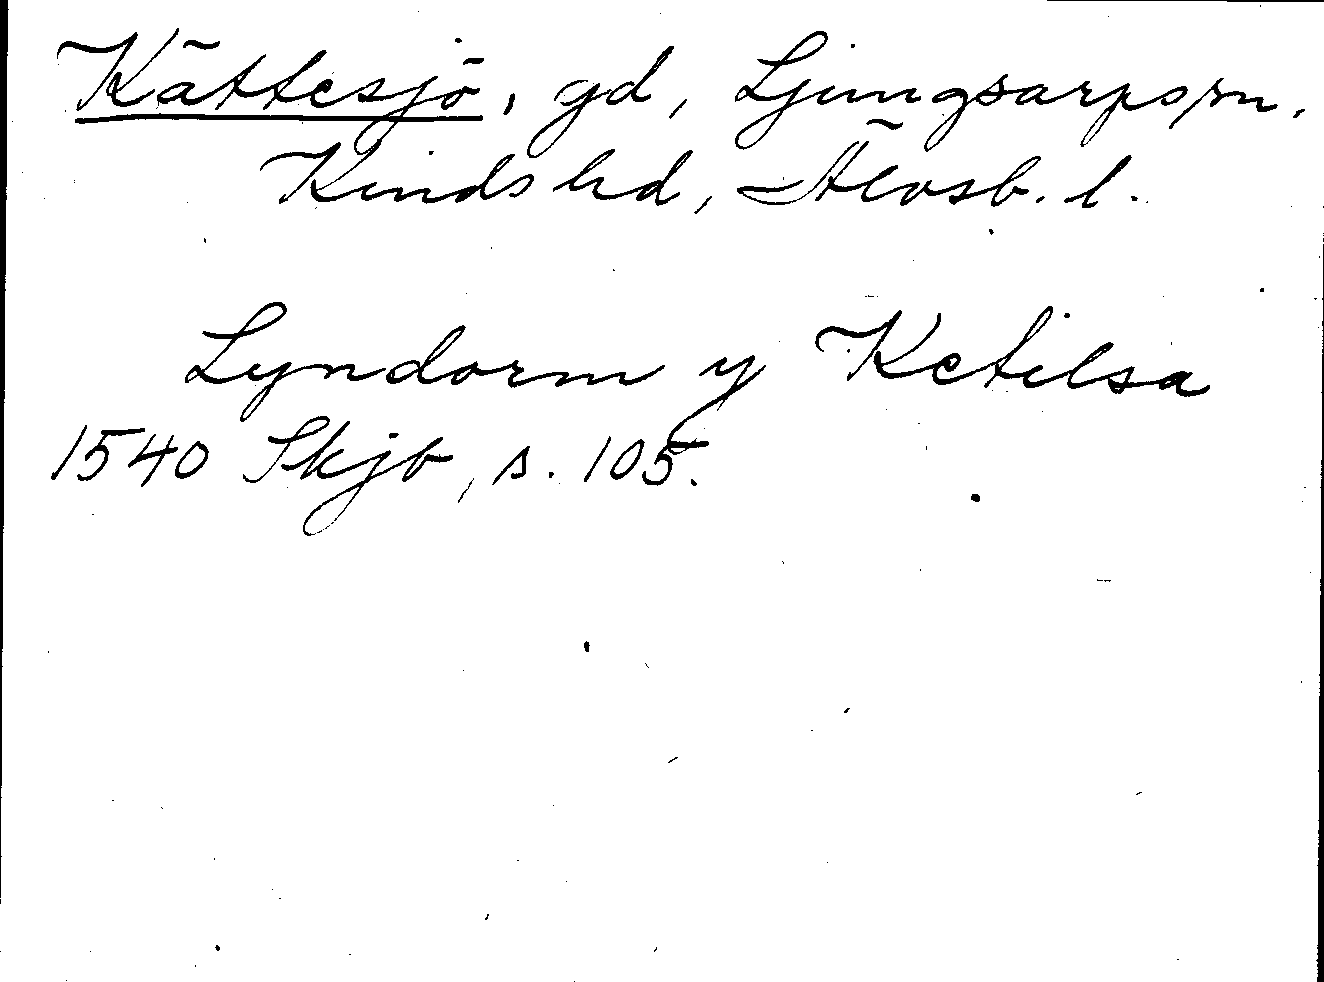 Kättesjö, gd, Ljungsarps sn,
Kinds hd, Älvsb. l.
Lyndorm y Ketilsa
1540 Skjb, s. 105.